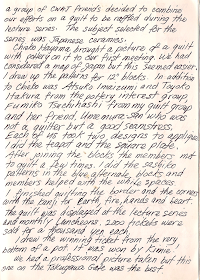 a group of CWAJ friends decided to combine
our efforts on a quilt to be raffled during the
lecture series. The subject selected for the
series was Japanese ceramics.
Chako Hayama brought a picture of a quilt
with pokery on it to our first meeting. We had
considered a map of Japan but this seemed nicer.
I drew up the patterns for 12 blocks. In addition
to Chako was Atsuko Imaizumi and Toyoko
Itakura from the pottery interest group
Fumiko Tsechihashi from my quilt group
and her friend, Umemura san who was
not a quilter but a good seamstress.
Each of us took two designs to applique
I did the teapot and the square plate.
After joining the blocks the members met
to quilt a few times. I did the sashiko
patterns in the blue alternate blocks and
members helped with the white spaces
I finished quilting the border and the corners
with the kanji for Earth, fire, hands and heart.
The quilt was displayed at the lecture series
and monthly luncheons. 2000 tickets were
sold for a thousand yen each.
I drew the winning ticket from the very
bottom of a pot. It was won by Kimura
We had a professional picture taken but this
one on the Takegawa Gate was the best